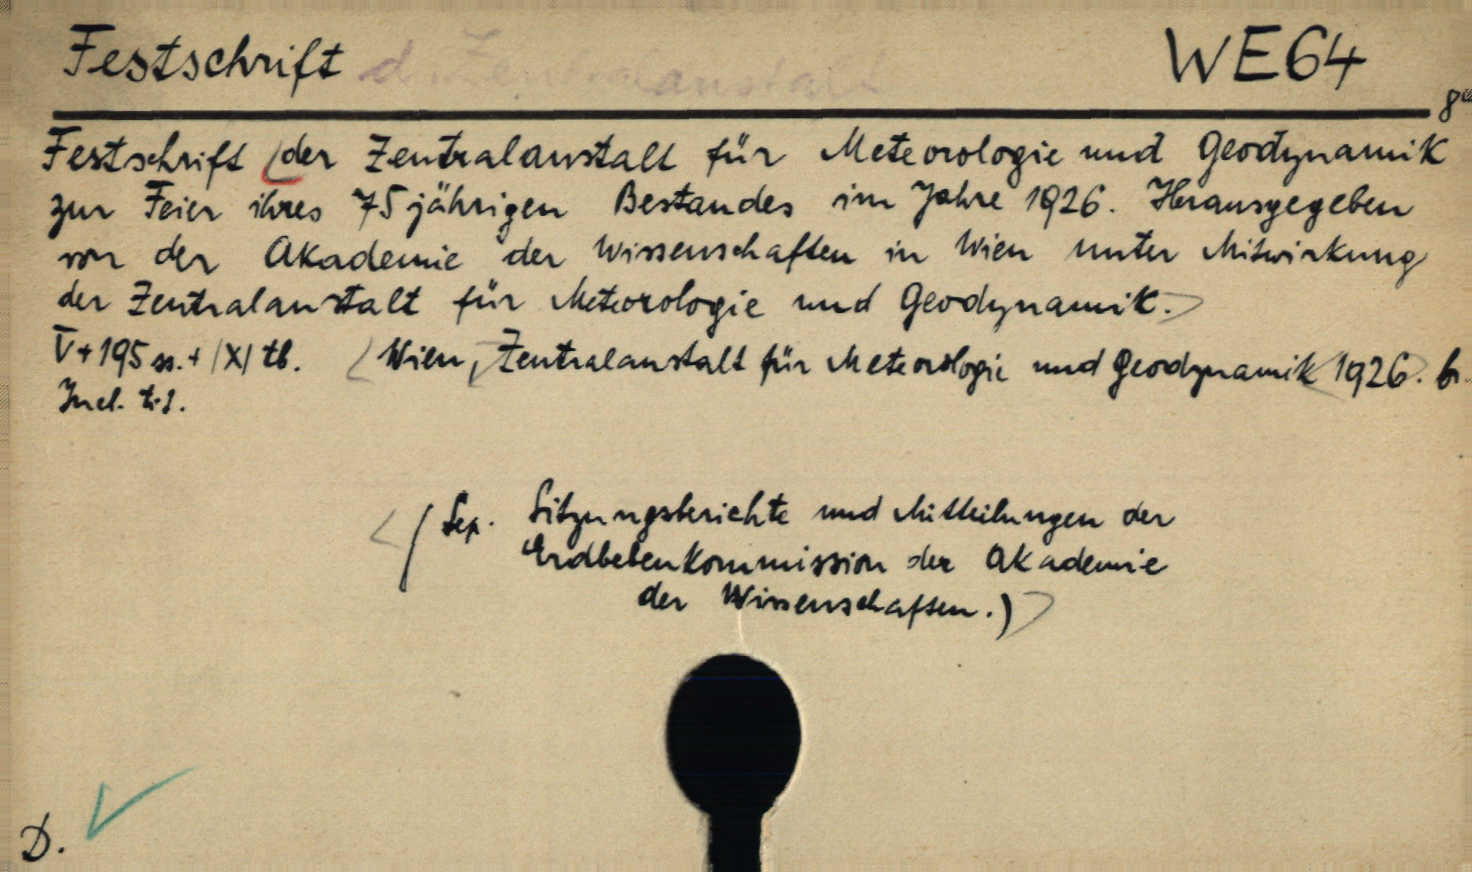 Festschrift d. Zentralanstalt WE64
8°
Festschrift (der Zentralanstalt für Meteorologie und Geodynamik
zur Feier ihres 75jährigen Bestandes im Jahre 1926. Herausgegeben
von der Akademie der Wissenschaften in Wien unter Mitwirkung
der Zentralanstalt für Meteorologie und Geodynamik.>
V+195 ss.+/X/ tb. <Wien, Zentralanstalt für Meteorologie und Geodynamik 1926>. br.
Incl. t-s.
</ Sep. Sitzungsberichte und Mitteilungen der
Erdbebenkommission der Akademie
der Wissenschaften.)>
D.